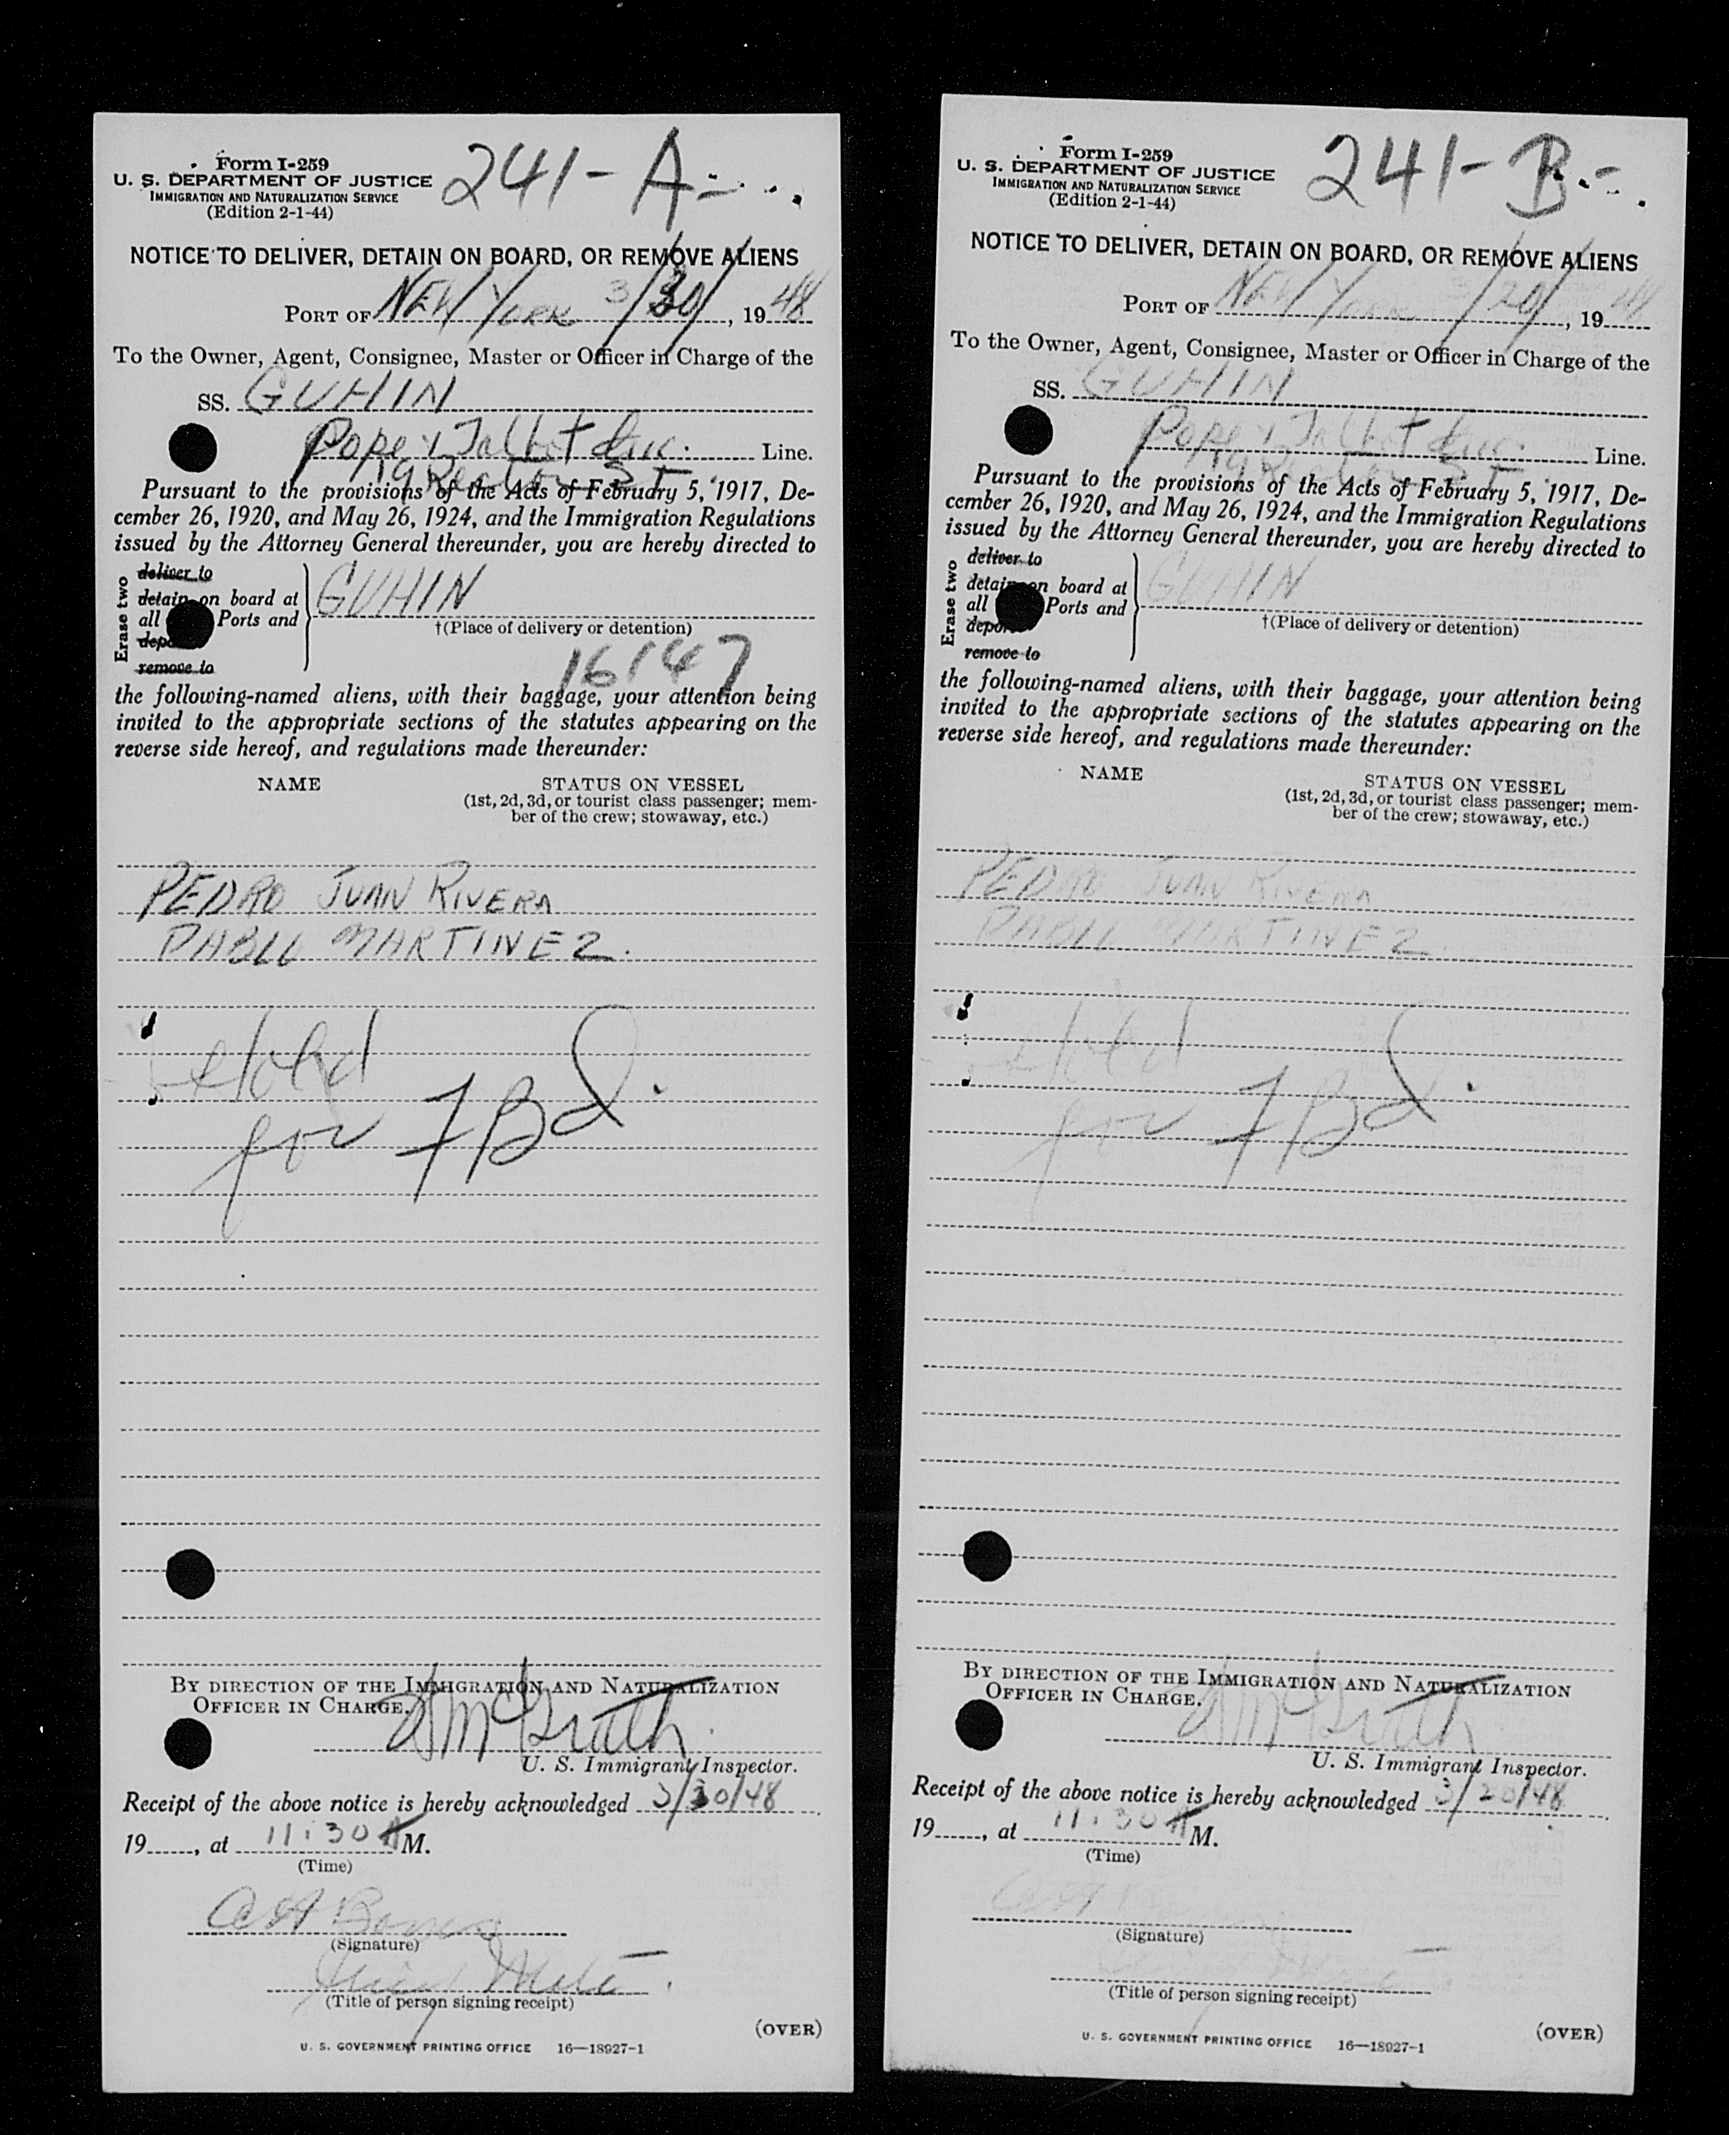 Form I-259
U. S. DEPARTMENT OF JUSTICE
IMMIGRATION AND NATURALIZATION SERVICE
(Edition 2-1-44)
241-A-
NOTICE TO DELIVER, DETAIN ON BOARD, OR REMOVE ALIENS
PORT OF NEW YORK 3/30/, 1948
To the Owner, Agent, Consignee, Master or Officer in Charge of the
SS. GUHIN
Pope & Talbot Inc. Line.
19 Rector St.
Pursuant to the provisions of the Acts of February 5, 1917, De-
cember 26, 1920, and May 26, 1924, and the Immigration Regulations
issued by the Attorney General thereunder, you are hereby directed to
Erase two
deliver to
detain on board at
all Ports and
remove to
GUHIN
†(Place of delivery or detention)
16147
the following-named aliens, with their baggage, your attention being
invited to the appropriate sections of the statutes appearing on the
reverse side hereof, and regulations made thereunder:
NAME
STATUS ON VESSEL
(1st, 2d, 3d, or tourist class passenger; mem-
ber of the crew; stowaway, etc.)
PEDRO JUAN RIVERA
PABLO MARTINEZ.
Hold
for FBI.
BY DIRECTION OF THE IMMIGRATION AND NATURALIZATION
OFFICER IN CHARGE.
McGrath
U. S. Immigrant Inspector.
Receipt of the above notice is hereby acknowledged 3/30/48
19, at 11:30 A M.
(Time)
(Signature)
Chief Mate
(Title of person signing receipt)
(OVER)
U. S. GOVERNMENT PRINTING OFFICE 16—18927-1
Form I-259
U. S. DEPARTMENT OF JUSTICE
IMMIGRATION AND NATURALIZATION SERVICE
(Edition 2-1-44)
241-B-
NOTICE TO DELIVER, DETAIN ON BOARD, OR REMOVE ALIENS
PORT OF NEW YORK 3/20/, 19
To the Owner, Agent, Consignee, Master or Officer in Charge of the
SS. GUHIN
Pope & Talbot Inc. Line.
19 Rector St.
Pursuant to the provisions of the Acts of February 5, 1917, De-
cember 26, 1920, and May 26, 1924, and the Immigration Regulations
issued by the Attorney General thereunder, you are hereby directed to
Erase two
deliver to
detain on board at
all Ports and
deport
remove to
GUHIN
†(Place of delivery or detention)
the following-named aliens, with their baggage, your attention being
invited to the appropriate sections of the statutes appearing on the
reverse side hereof, and regulations made thereunder:
NAME
STATUS ON VESSEL
(1st, 2d, 3d, or tourist class passenger; mem-
ber of the crew; stowaway, etc.)
PEDRO JUAN RIVERA
PABLO MARTINEZ.
Hold
for FBI.
BY DIRECTION OF THE IMMIGRATION AND NATURALIZATION
OFFICER IN CHARGE.
McGrath
U. S. Immigrant Inspector.
Receipt of the above notice is hereby acknowledged 3/20/48
19, at 11:30 A M.
(Time)
(Signature)
(Title of person signing receipt)
(OVER)
U. S. GOVERNMENT PRINTING OFFICE 16—18927-1